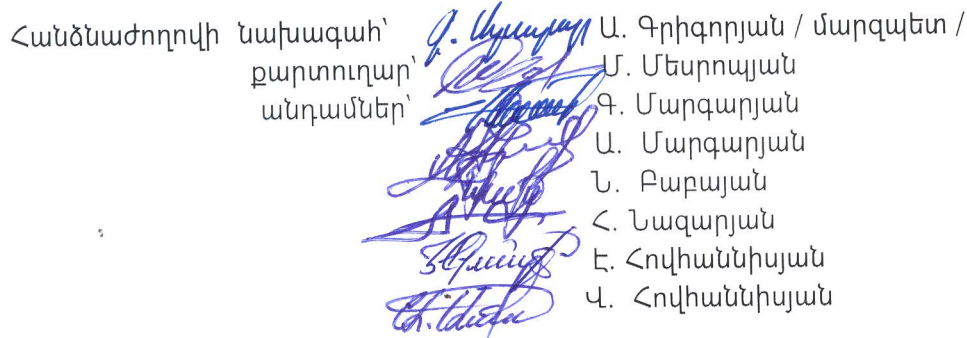 Հանձնաժողովի նախագահ՝ Ա. Գրիգորյան / մարզպետ /
քարտուղար՝ Մ. Մեսրոպյան
անդամներ՝ Գ. Մարգարյան
Ա. Մարգարյան
Ն. Բաբայան
Հ. Նազարյան
Է. Հովհաննիսյան
Վ. Հովհաննիսյան